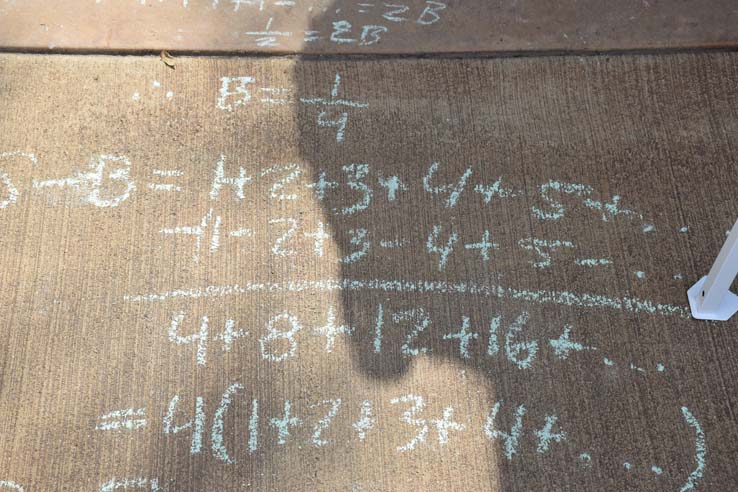 1-1+1-... = 2B
1/2 = 2B
∴ B = 1/4
S-B = 1+2+3+4+5+...
-1-2+3-4+5-...
4+8+12+16+...
= 4(1+2+3+4+...)
=